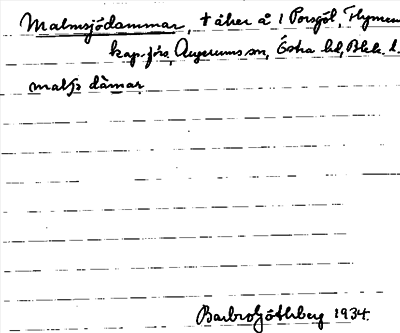 Malmsjödammar, + åker å 1 Porsgöl, Flymens
kap.förs, Augerums sn, Östra hd, Blek. l.
dàmar
Barbro Göthberg 1934.